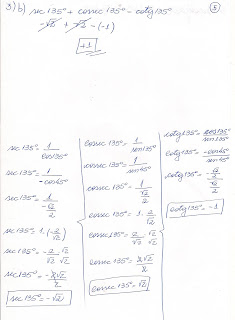 3)b) sec 135º + cossec 135º - cotg 135º
5
-√2 + √2 - (-1)
+1
sec 135º = 1/cos 135º
sec 135º = 1/-cos 45º
sec 135º = 1/-√2/2
sec 135º = 1 . (-2/√2)
sec 135º = -2/√2 . √2/√2
sec 135º = -2√2/2
sec 135º = -√2
cossec 135º = 1/sen 135º
cossec 135º = 1/sen 45º
cossec 135º = 1/√2/2
cossec 135º = 1 . 2/√2
cossec 135º = 2/√2 . √2/√2
cossec 135º = 2√2/2
cossec 135º = √2
cotg 135º = cos 135º/sen 135º
cotg 135º = -cos 45º/sen 45º
cotg 135º = -√2/2/√2/2
cotg 135º = -1